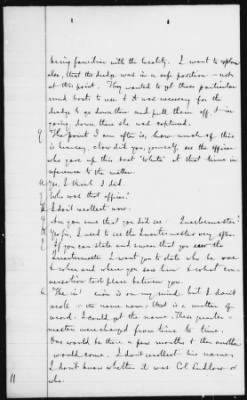 being familiar with the locality. I want to explain
also, that the dredge was in a safe position - not
at this point. They wanted to get these particular
scows boats to use & it was necessary for the
dredge to go down there and pull them off, & in
going down there she was captured.
Q The point I am after is, how much of this
is hearsay. Now did you, yourself, see the officer
who gave up this boat "White" at that time in
reference to the matter.
A Yes, I think I did.
Q Who was that officer?
A I don't recollect now.
Q Are you sure that you did see Quartermaster?
A Yes sir, I used to see the Quartermaster very often.
Q If you can state and swear that you saw the
Quartermaster I want you to state who he was
& when and where you saw him & what con-
versation took place between you.
A The is on my mind, but I don't
recollect the name now, that is a matter of
record. I could get the name. These quarter-
masters were changed from time to time.
One would be there a few months & then another
would come. I don't recollect his name,
I don't know whether it was Col. Ludlow or
who.
11